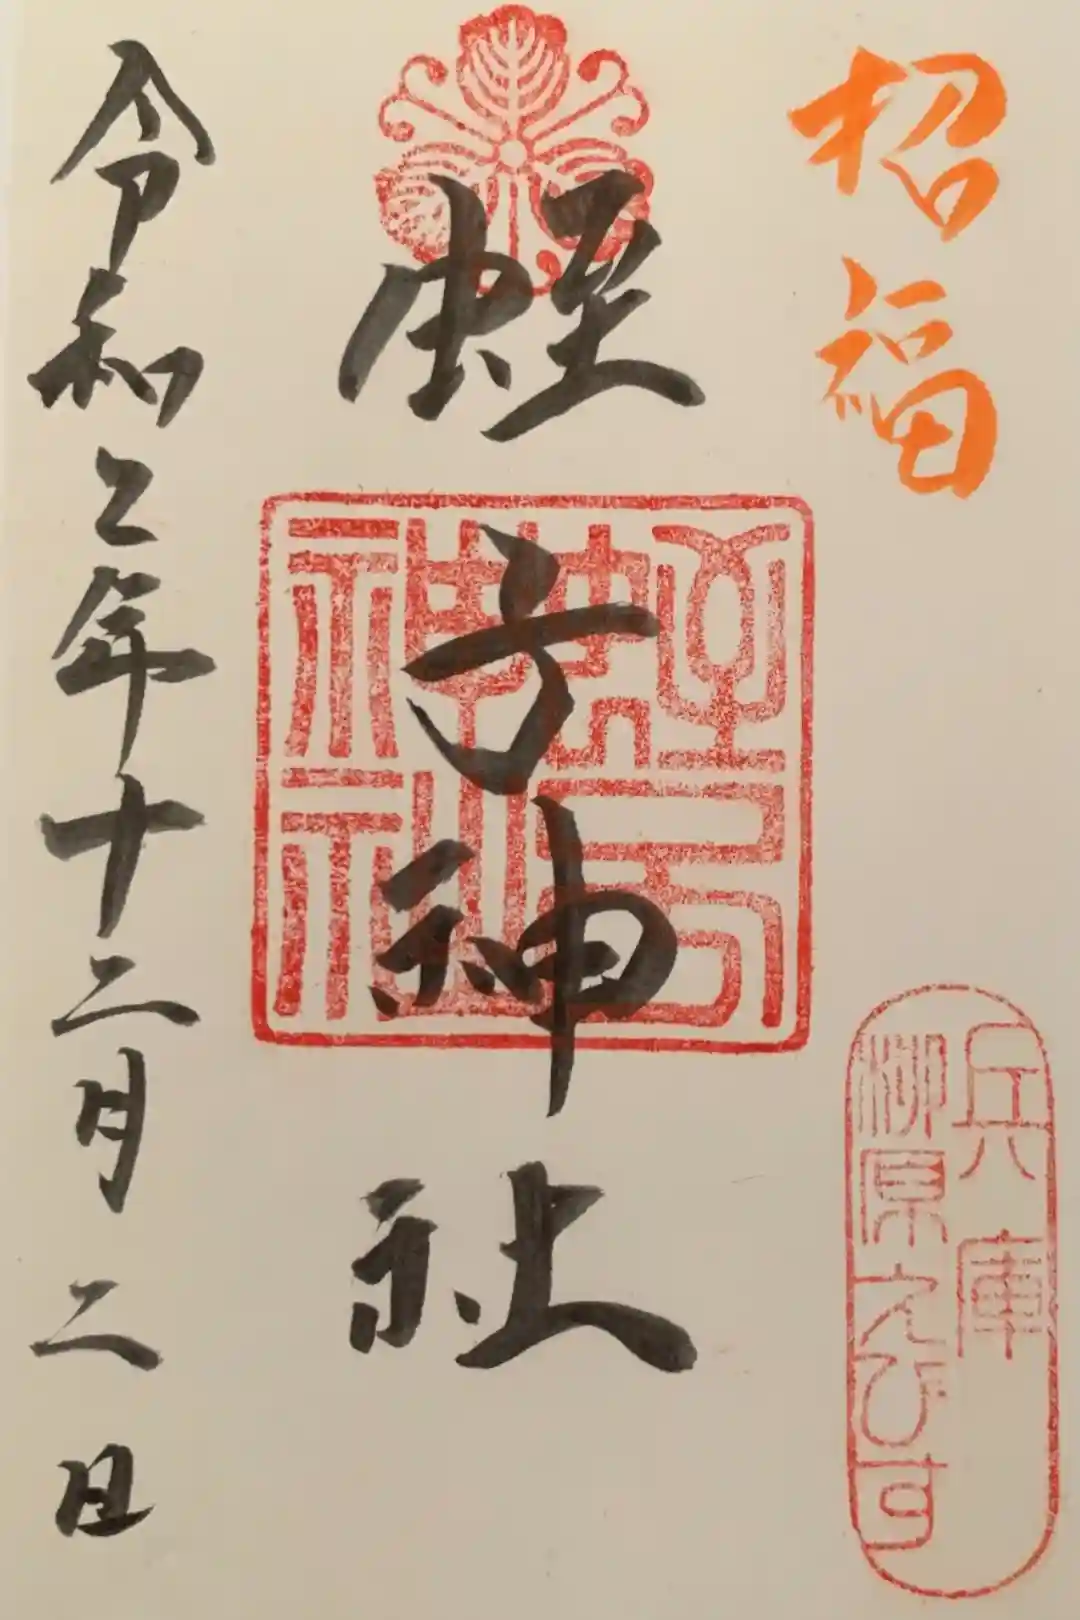 招福
兵庫
柳原えびす
蛭子神社
蛭子
神社
令和二年十二月二日